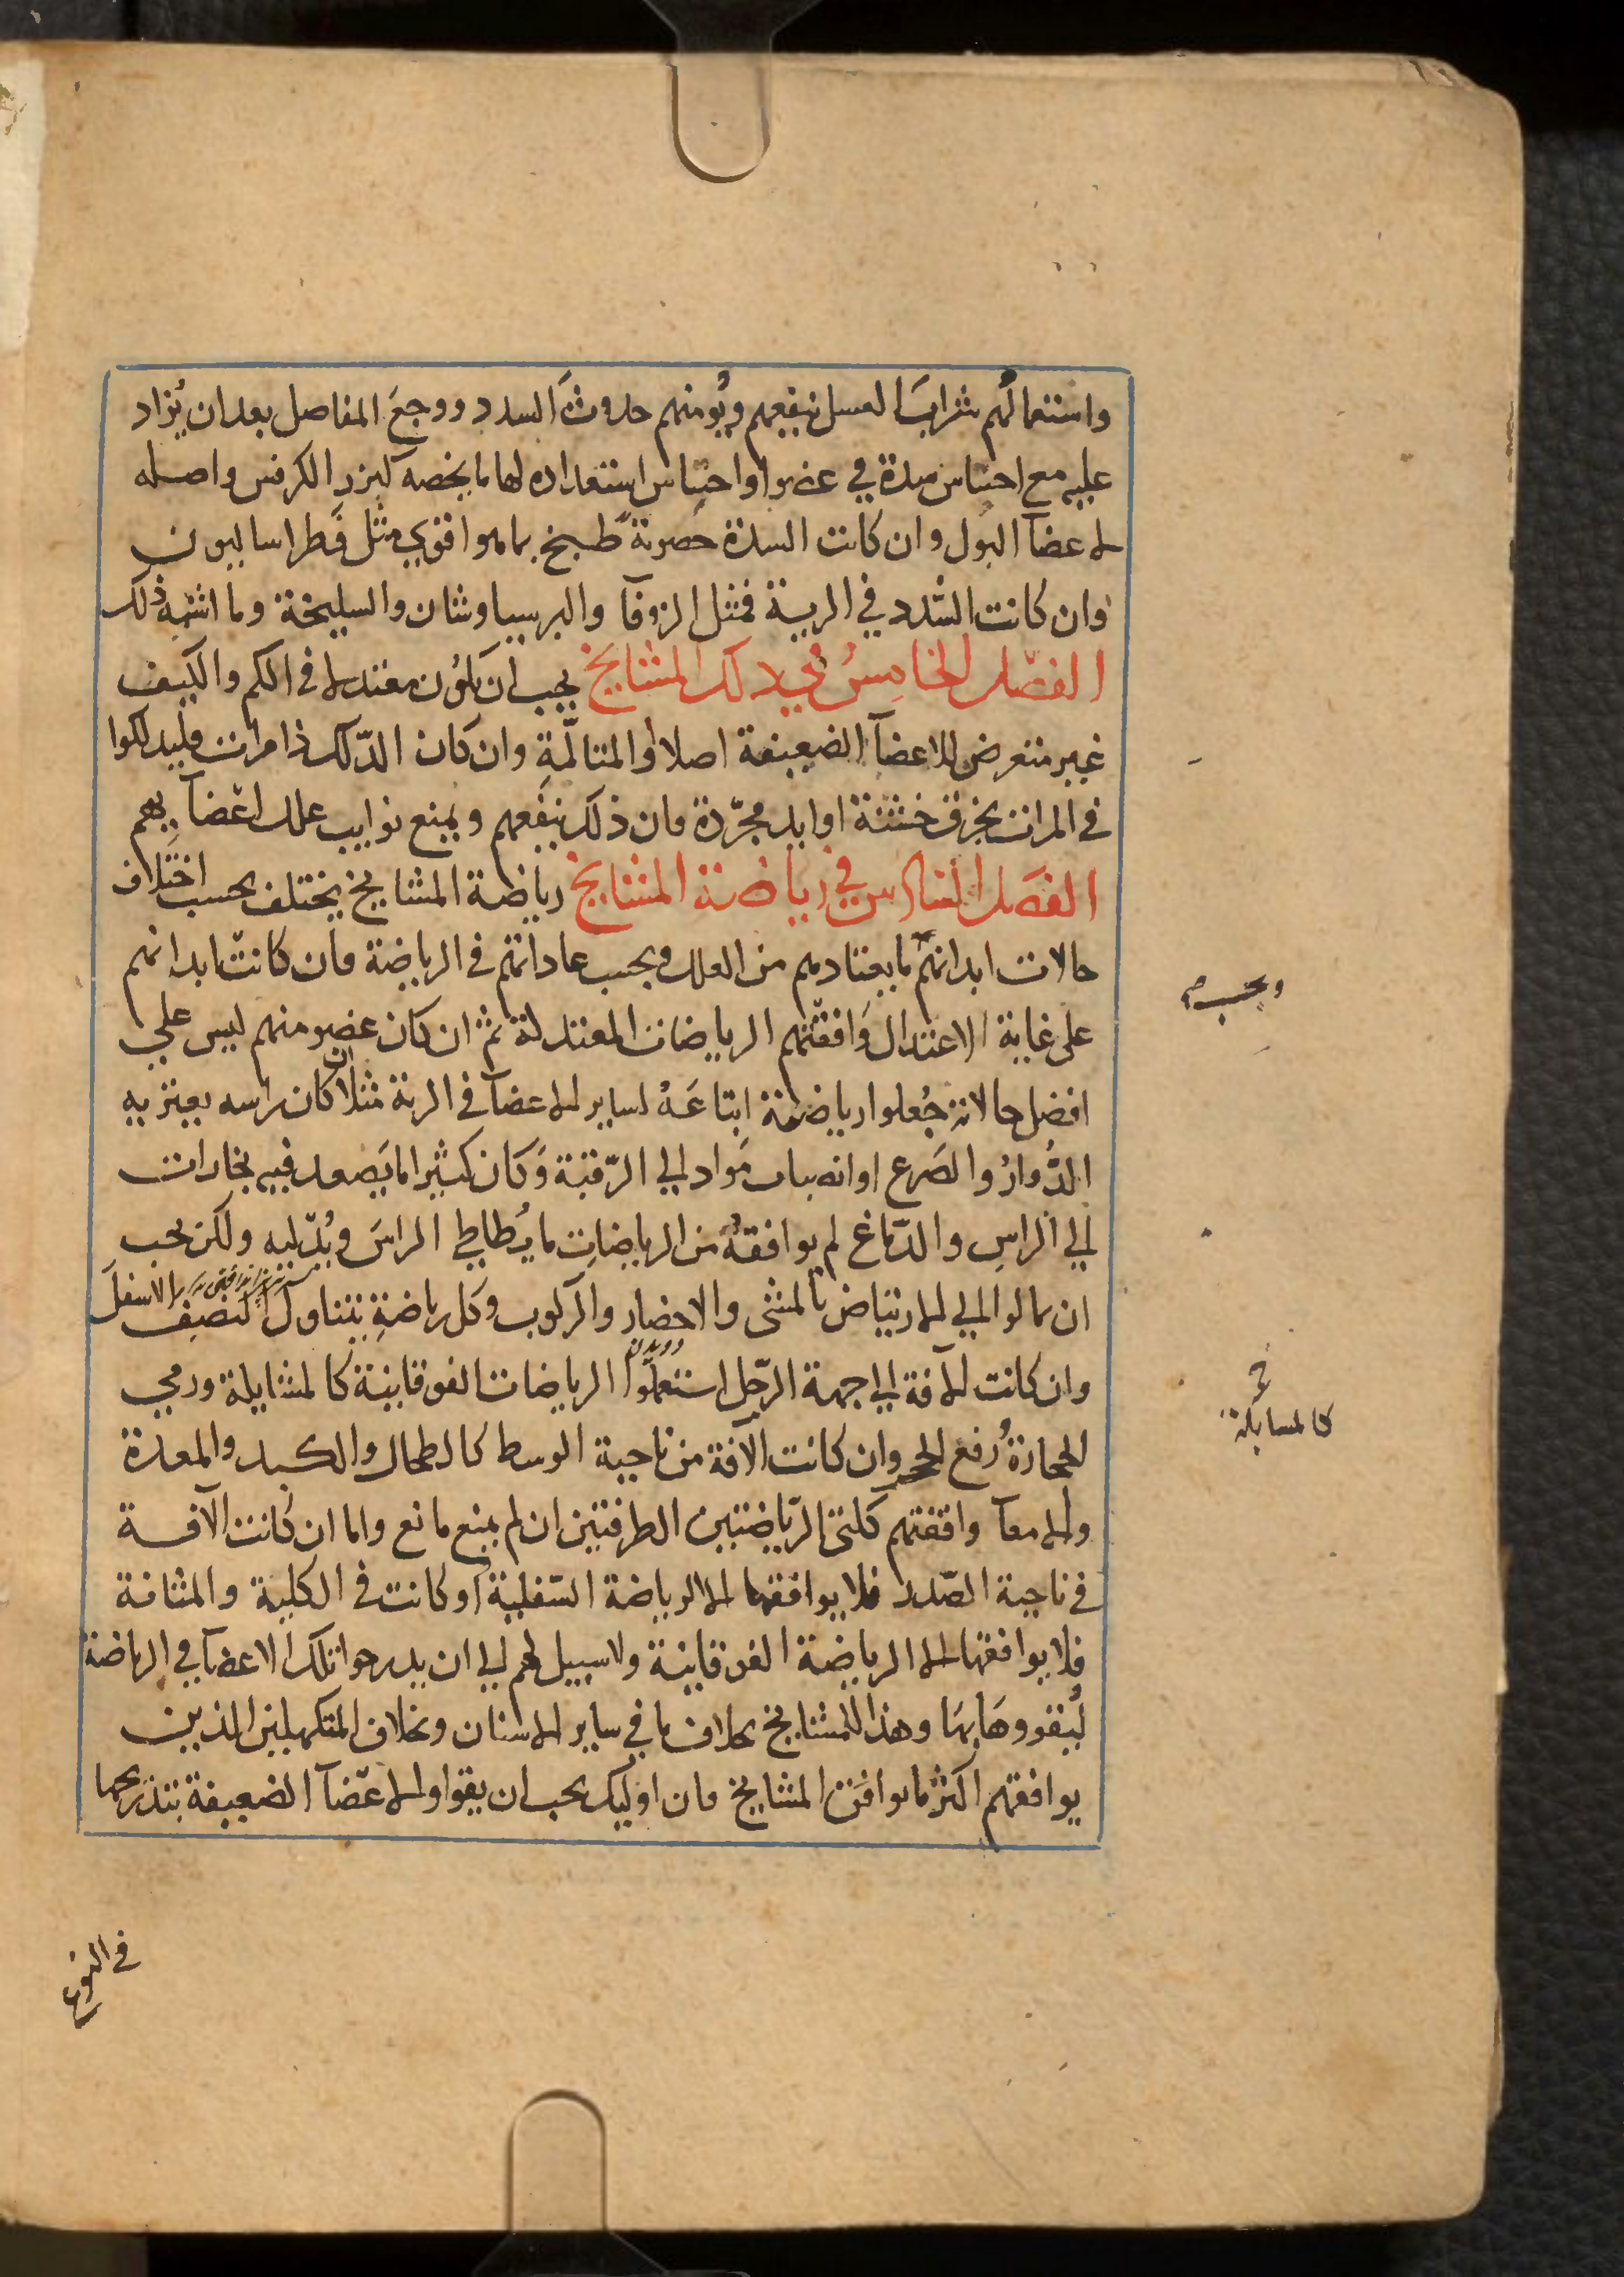 واستعمالُهم شرابَ العسل ينفعهم ويُومنهم حدوثَ السدد ووجعَ المفاصل بعد ان يُزاد
عليه مع احتباس سدة في عضو او احتباس استعداده لها ما يخصه كبزر الكرفس واصله
لاعضآ البول وان كانت السدة حَصوية طبخ بما هو اقوي مثل فطراساليون
وان كانت السّدد في الرية فمثل الزوفآ والبرسياوشان والسليخة وما اشبه ذلك
الفصل الخامِسُ في دلك المشايخ يجب ان يكون معتدلا في الكم والكيف
غير متعرض للاعضآ الضعيفة اصلا او المتالّمة وان كان الدّلك ذا مرات فليدلكوا
في المرات بخرق خشنة او ايد مجرّدة فان ذلك ينفعهم ويمنع نوايب علل اعضآيهم
الفصل السادس في رياضة المشايخ رياضة المشايخ يختلف بحسب اختلاف
حالات ابدانهم ما يعتادهم من العلل وبحسب عاداتهم في الرياضة فان كانت ابدانهم
على غاية الاعتدال وَافقتهم الرياضات المعتدلة ثم ان كان عضو منهم ليس علي
افضل حالاته جُعلوا رياضته اتباعَهُ لساير الاعضآ في الرية مثلا ان كان راسه يعتريه
الدُّوارُ والصَرع او انصباب مَواد الي الرّقبة وَكان كثيرا ما يَصعد فيه بخارات
الي الراسِ والدّماغ لم يوافقهُ من الرياضاتِ ما يُطاطي الراسَ ويُدّليه ولكن يجب
ان يمالوا الي الارتياض بالمشى والاحضار والركوب وكل رياضةٍ يتناول النصِف الاسفلَ
وان كانت الافة الي جهة الرّجل استعملوا الرياضات الفوقانية كالمشايلة ورمي
الحجارةُ رفع الحجر وان كانت الآفة من ناحية الوسط كالطحال والكبد والمعدة
والامعآ وافقتهم كلتى الرّياضتين الطرفيتين ان لم يمنع مانع واما ان كانت الآفة
في ناحية الصّدر فلا يوافقها الا الرياضة السّفلية او كانت في الكلية والمثانة
فلا يوافقها الا الرياضة الفوقانية ولا سبيل لهم الي ان يدرجوا تلك الاعضآ في الرياضة
ليُقووهَا بهَا وهذا للمشايخ بخلاف ما في ساير الاسنان وبخلاف المتكهلين الذين
يوافقهم اكثر ما يوافق المشايخ فان اوليك يجب ان يقووا الاعّضآ الضعيفة بتدريجها
وبحسب صح
خ
كالمسايلة
دويدن
في النوع